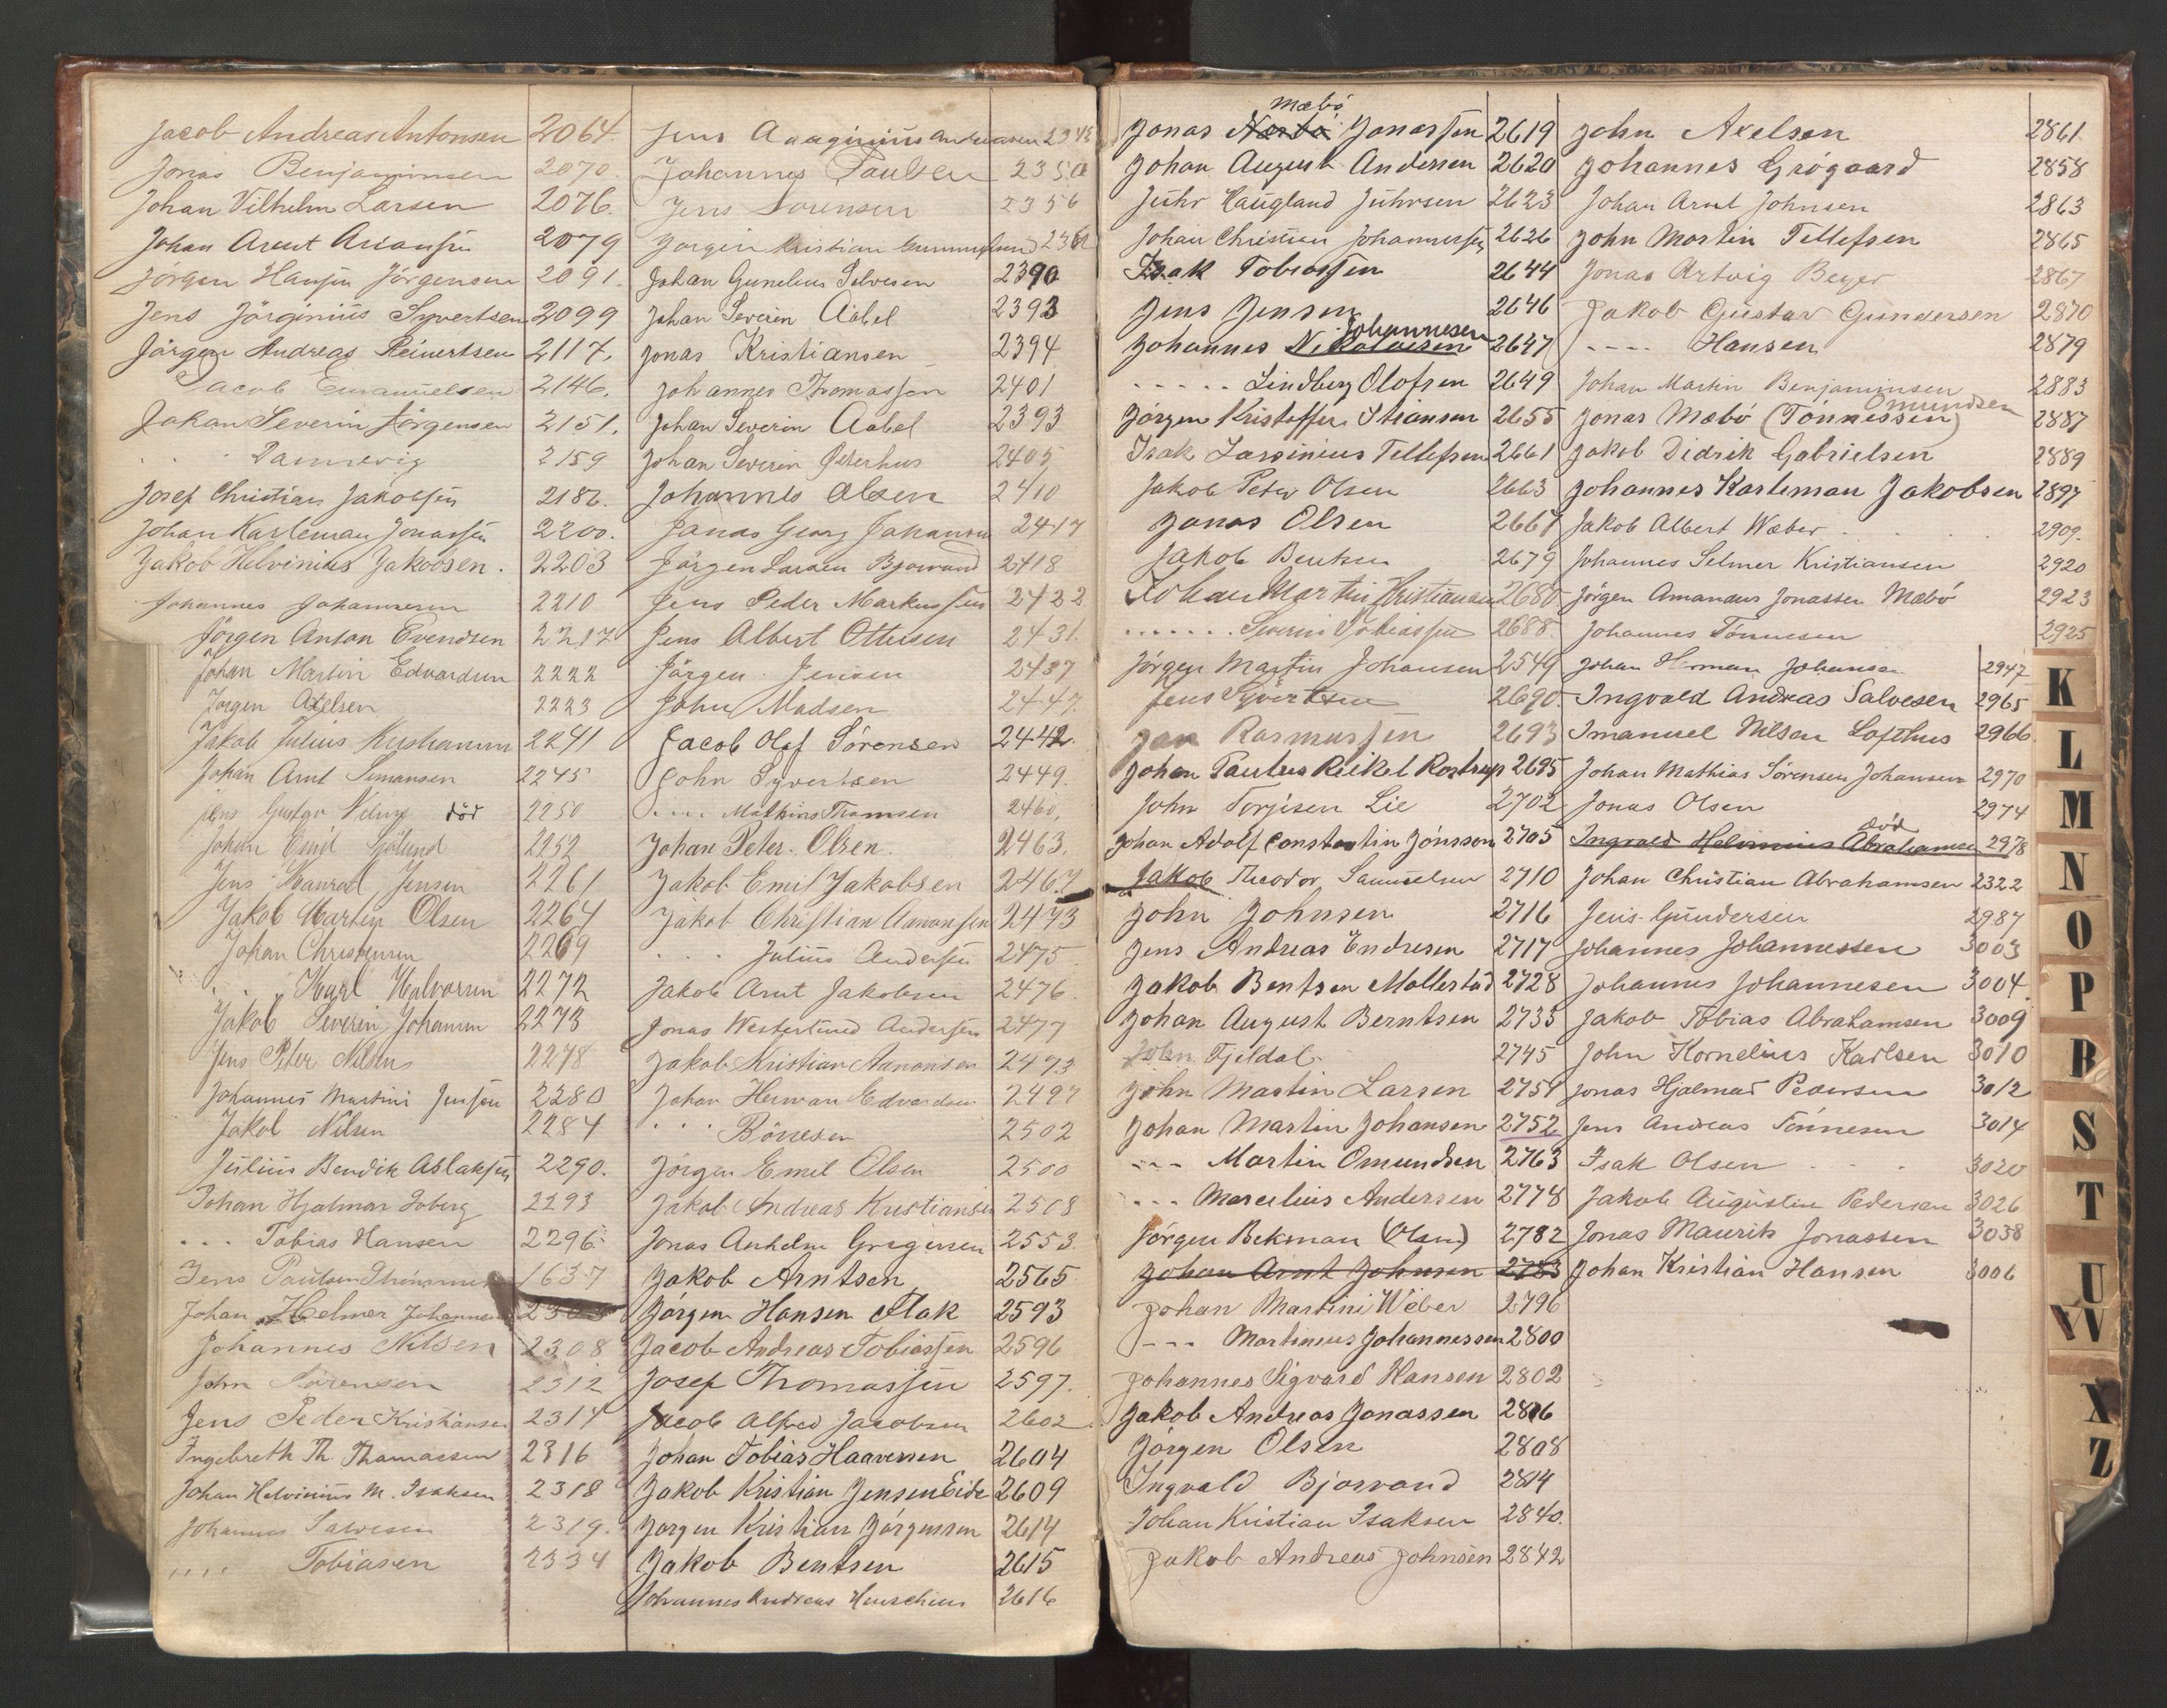 Jacob Andreas Antonsen 2064.
Jonas Benjaminsen 2070.
Johan Vilhelm Larsen 2076.
Johan Arnt 2079
Jörgen Hansen Jörgensen 2091.
Jens Jörginius Syvertsen 2099
Jörgen Andreas Reinertsen 2117.
Jacob Emanuelsen 2146.
Johan Severin Jörgensen 2151.
. . . Dannevig 2159
Josef Christian Jakobsen 2186.
Johan Karleman Jonassen 2200.
Jakob Helvinius Jakobsen. 2203
Johannes Johannesen 2210
Jörgen Anton Evendsen 2217
Johan Martin Edvardsen 2222
Jörgen Axelsen 2223
Jakob Julius Kristiansen 2241
Johan Arnt Simonsen 2245
Jens Gustav död 2250
Johan Emil Sjölund 2252
Jens Konrad Jensen 2261
Jakob Martin Olsen 2264
Johan Christensen 2269
. . . Karl Halvorsen 2272
Jakob Severin Johansen 2273
Jens Peter Nilsen 2278
Johannes Martini Jensen 2280
Jakob Nilsen 2284
Julius Bendik Aslaksen 2290.
Johan Hjalmar Soberg 2293
. . . Tobias Hansen 2296.
Jens Paulsen 1637
Johan Helmer Johannesen
Johannes Nilsen 2308
John Sörensen 2312
Jens Peder Kristiansen 2314
Ingebreth Th. Thomassen 2316
Johan Helvinius M. Isaksen 2318
Johannes Salvesen 2319.
. . . . Tobiasen 2334
Jens Andreasen 2345
Johannes Paulsen 2350
Jens Sörensen 2356
Jörgen Kristian Gunmundsen
Johan Gunelius Salvesen 2390
Johan Severin Aabel 2393
Jonas Kristiansen 2394
Johannes Thomassen 2401
Johan Severin Aabel 2393
Johan Severin Östերhus 2405
Johannes Olsen 2410
Jonas Georg Johansen 2417
Jörgen Larsen Bjorvand 2418
Jens Peder Markussen 2422
Jens Albert Ottesen 2431.
Jörgen Jensen 2437
John Madsen 2447.
Jacob Olaf Sörensen 2442.
John Syvertsen 2449.
. . . . Mathias Thomsen 2460.
Johan Peter Olsen. 2463.
Jakob Emil Jakobsen 2467
Jakob Christian Aanonsen 2473
. . . Julius Andersen 2475
Jakob Arnt Jakobsen 2476.
Jonas Westerlund Andersen 2477
Jakob Kristian Aanonsen 2473
Johan Herman Edvardsen 2497
. . . Börresen 2502
Jörgen Emil Olsen 2500
Jakob Andreas Kristiansen 2508
Jonas Anhelm Gregersen 2553.
Jakob Arntsen 2565
Jörgen Hansen Flak 2593
Jacob Andreas Tobiassen 2596
Josef Thomassen 2597.
Jacob Alfred Jacobsen 2602
Johan Tobias Haaversen 2604
Jakob Kristian Jensen Eide 2609
Jörgen Kristian Jörgensen 2614
Jakob Bentsen 2615
Johannes Andreas 2616
Mæbö
Jonas Jonassen 2619
Johan August Andersen 2620
Juhr Haugland Juhrsen 2623
Johan Christian Johannessen 2626
Isak Tobiassen 2644
Jens Jensen 2646
Johannesen
Johannes Nikolaisen 2647
. . . . . Lindberg Olofsen 2649
Jörgen Kristoffer Stiansen 2655
Isak Lassinius Tellefsen 2661
Jakob Peter Olsen 2663
Jonas Olsen 2667
Jakob Bentsen 2679
Johan Martin Kristiansen 2680
. . . . . . . Severin Tobiassen 2688.
Jörgen Martin Johansen 2549
Jens Syvertsen 2690.
Jan Rasmussen 2693
Johan Paulus Reikel Rostrup 2695
John Torjusen Lie 2702
Johan Adolf Constantin Jönsson 2705
Jakob Theodor Samuelsen 2710
John Johnsen 2716
Jens Andreas Endresen 2717
Jakob Bentsen Mollestad 2728
Johan August Berntsen 2735
John Fjeldal 2745
John Martin Larsen 2751
Johan Martin Johansen 2752
- - - Martin Omundsen 2763
- - - Marselius Andersen 2778
Jörgen Bekman (Olsen) 2782
Johan Arnt Johnsen 2783
Johan Martini Weber 2796
- - - Martinius Johannessen 2800
Johannes Sigvard Hansen 2802
Jakob Andreas Jonassen 2806
Jörgen Olsen 2808
Ingvald Bjorvand 2814
Johan Kristian Isaksen 2840.
Jakob Andreas Johnsen 2842
John Axelsen 2861.
Johannes Grögaard 2858
Johan Arnt Johnsen 2863
John Martin Tellefsen 2865
Jonas Artvig Beyer 2867
Jakob Gustav Gundersen 2870
- - - - Hansen 2879
Johan Martin Benjaminsen 2883
Omundsen
Jonas Mæbö (Tönnessen) 2887
Jakob Didrik Gabrielsen 2889
Johannes Karleman Jakobsen 2897
Jakob Albert Wæber 2909.
Johannes Selmer Kristiansen 2920
Jörgen Amandus Jonassen Mæbö 2923
Johannes Tönnesen 2925
Johan Herman Johansen 2947
Ingvald Andreas Salvesen 2965
Imanuel Nilsen Lofthus 2966
Johan Mathias Sörensen Johansen 2970
Jonas Olsen 2974
död
Ingvald Helvinius Abrahamsen 2978
Johan Christian Abrahamsen 2322
Jens Gundersen 2987
Johannes Johannessen 3003
Johannes Johannesen 3004
Jakob Tobias Abrahamsen 3009
John Kornelius Karlsen 3010
Jonas Hjalmar Pedersen 3012
Jens Andreas Tönnesen 3014
Isak Olsen 3020
Jakob Augustin Pedersen 3026
Jonas Maurits Jonassen 3038
Johan Kristian Hansen 3006
K
L
M
N
O
P
R
S
T
U
W
X
Z